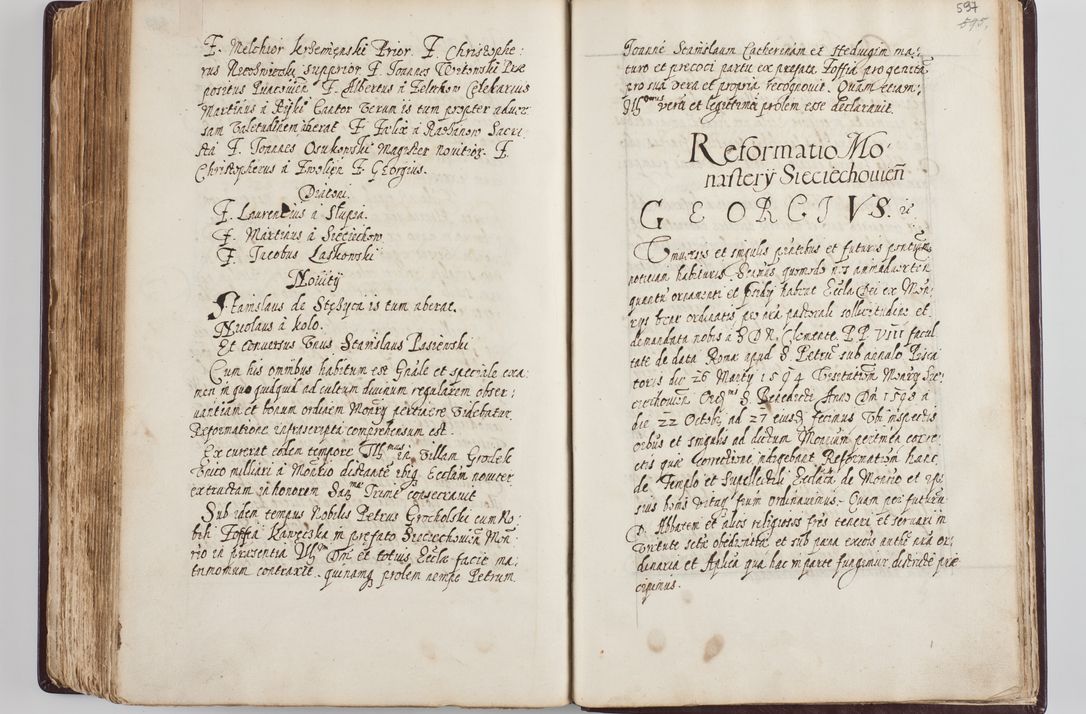 F. Melchior Krzemienski Prior F. Christophe:
rus supprior F. Ioannes Præ
positus F. Albertus à
Martinus à Cantor Verum is tum propter adver
sam Valetudinem aberat F. Fælix à Radzanow Sacri
sta F. Ioannes Osukowski Magister novitior. F.
Christopherus à Zwolien F. Georgius.
Diaconi.
F. Laurentius à Slupia.
F. Martinus à Sieciechow
F. Iacobus Laskowski
Novitÿ
Stanislaus de Stęzyca is tum aberat.
Nicolaus à kolo.
Et Conversus Unus Stanislaus Pasienski
Cum his omnibus habitum est Gnále et speciale exa:
men in quo quidquid ad cultum divinum regularem obser:
vantiam et bonum ordinem Monrÿ pertinere Videbatur
Reformatione infrascripta comprehensum est.
Ex curerat eodem tempore Illmus in Villam Grodek
Unico milliari à Monrio distantē ibiq Ecclam noviter
extructam in honorem Trinit consecravit
Sub idem tempus Nobilis Petrus Grocholski cum No:
bili Zoffia in prefato Sieciechovien Mon:
rio in præsentia Illmi Dni et totius Eccla facie ma:
trimonium contraxit. quinamq prolem nempe Petrum
597
595.
Ioanne Stanislaum Catherinam et Hedvigim ma:
turo et precoci partu ex prefata Zoffia progenitā
pro sua vera et propria recognovit. Quam etiam
Illmus vera et legittimā prolem esse declaravit.
Reformatio Mo:
nasterÿ Sieciechovien
GEORGIVS. &
Universis et singulis pñtibus et futuris
notitiam habituris. Scimus quomodo nos animadverten
quantū ornamenti et habeat Eccla Dei ex Mon:
rys bene ordinatis pro cura pastorali sollicitudine et
demandata nobis à S D N. Clemente PP VIII facul
tate de data Romæ apud S Petrū sub annulo Pisca
toris die 26 Martÿ 1594 Visitationē Monrÿ Sie
ciechovien Ordinis S Benedicti Anno Dni 1598 à
die 22 Octobr ad 27 eiusd fecimus Ubi inspectis
oibus et singulis ad dictum Monrium pertinen corre
ctis quæ Correctione indigebant Reformationem hanc
de Templo et Supellectili Ecclastica, de Monrio et
sius bonis fratrum ordinavimus. Quam per futurū
D. Abbatem et alios religiosos frēs teneri et servari in
Virtute sctæ obedientiæ et sub pæna excois authē nrā or:
dinaria et Aplica qua hac in parte fungimur, districte præ
cipimus.